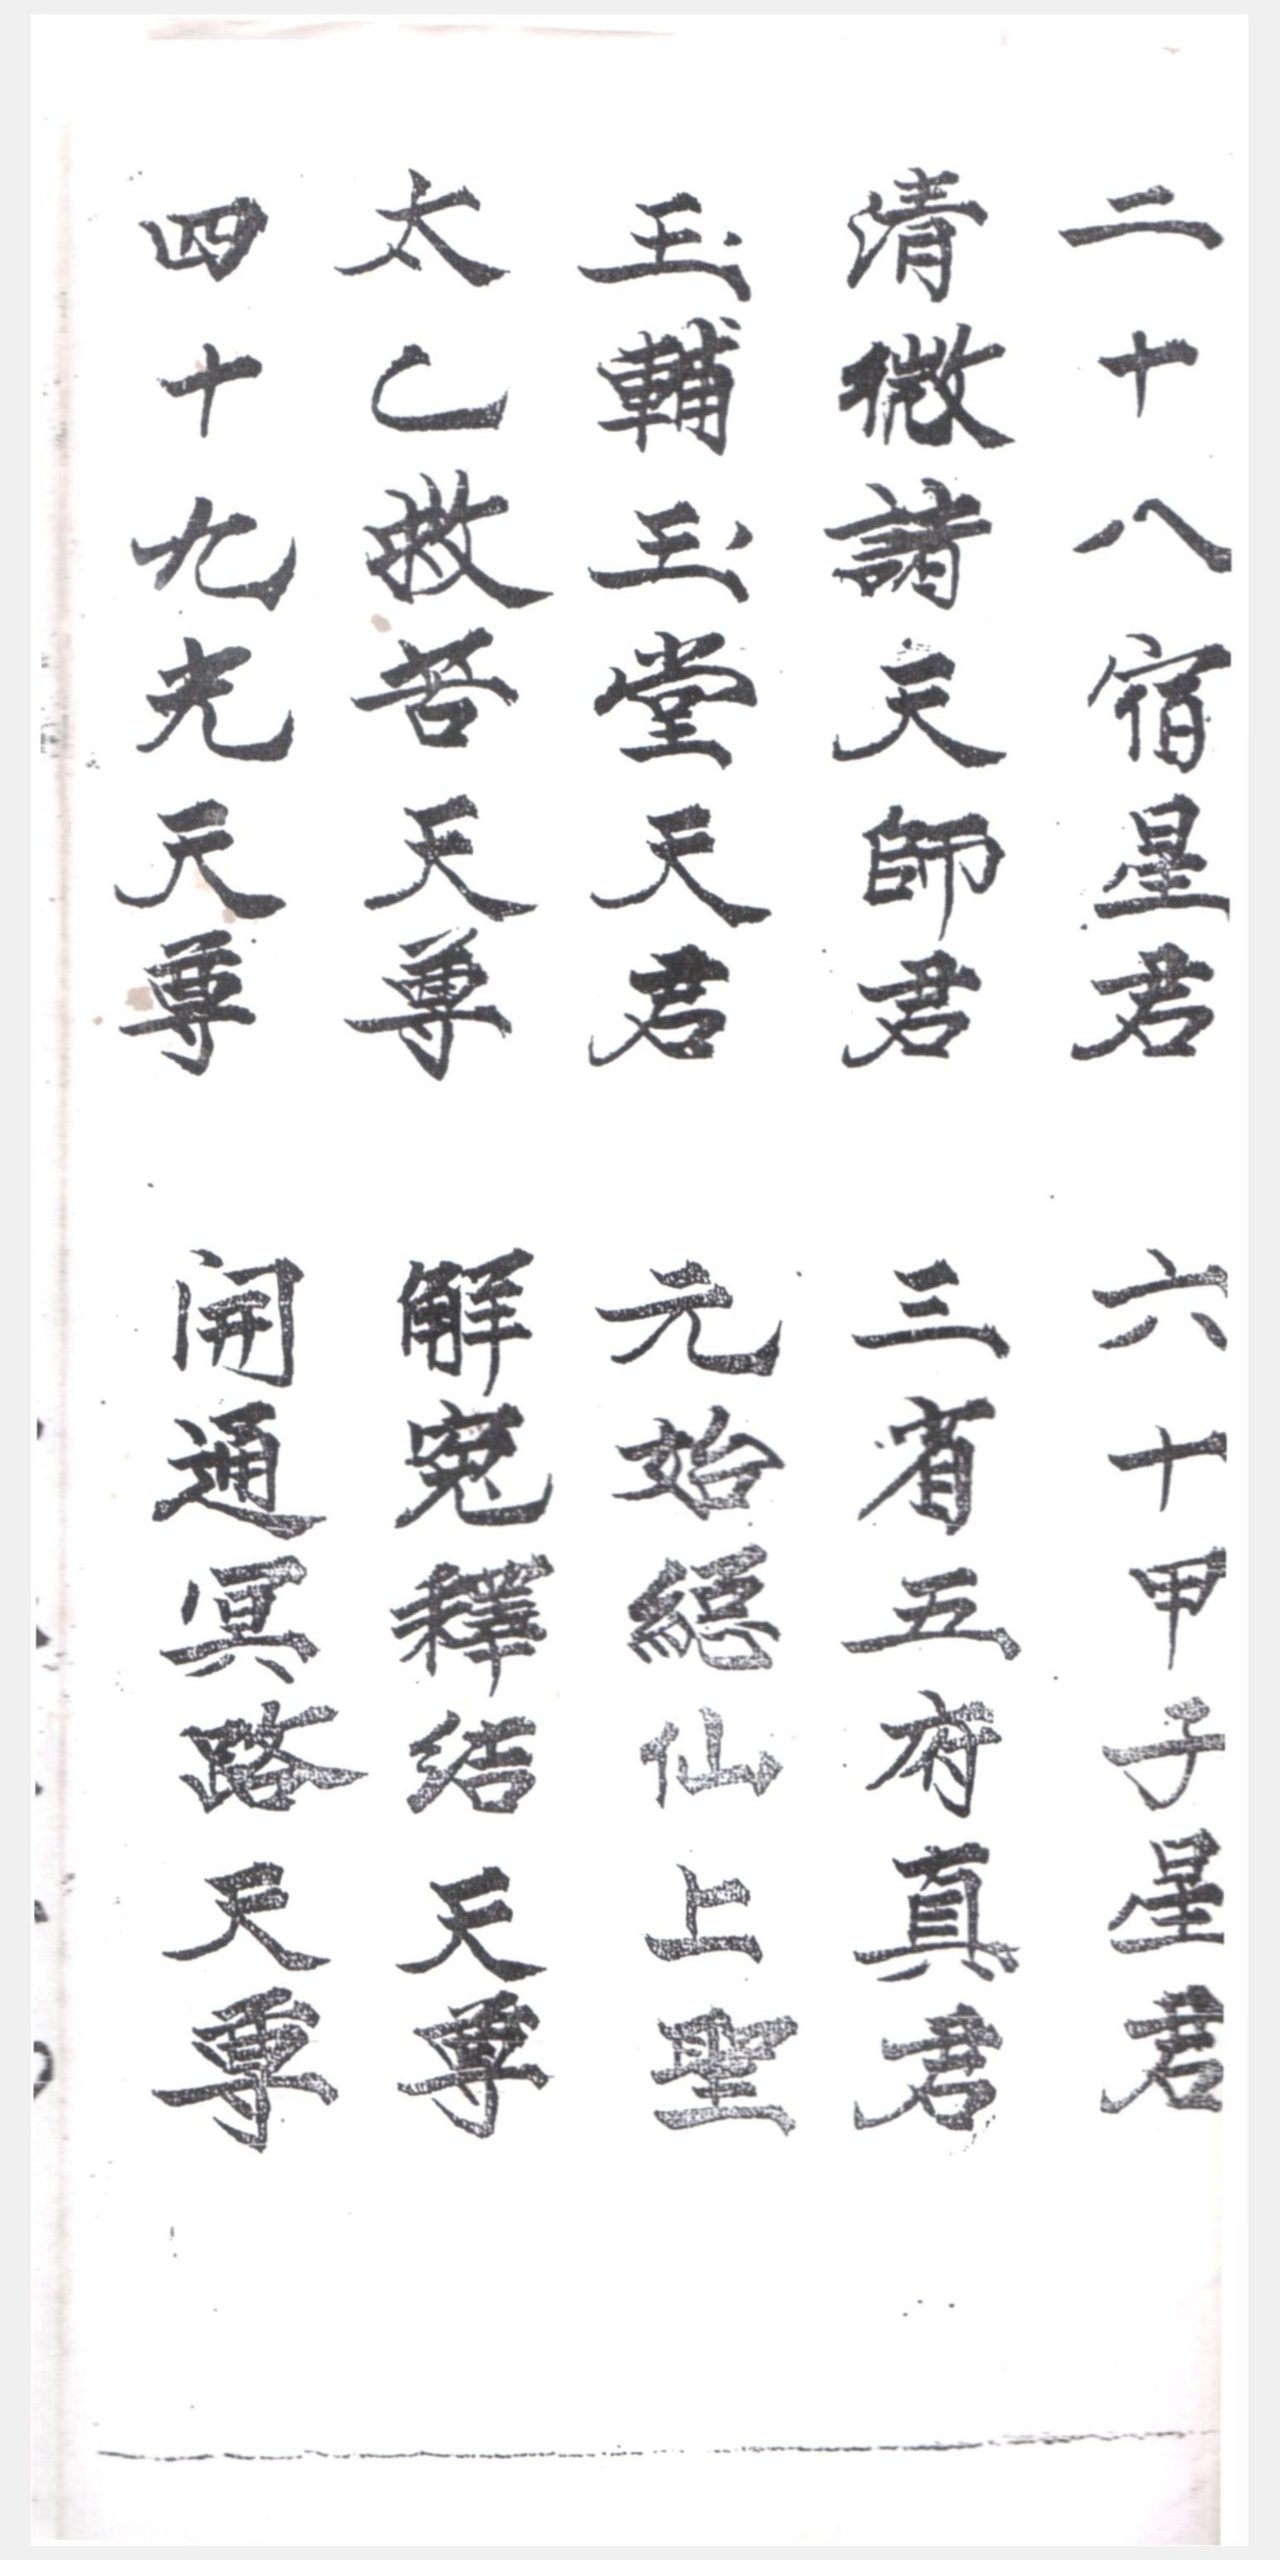 二十八宿星君 六十甲子星君
清微諸天師君 三省五府真君
玉輔玉堂天君 元始總仙上聖
太乙救苦天尊 解冤釋結天尊
四十九光天尊 開通冥路天尊